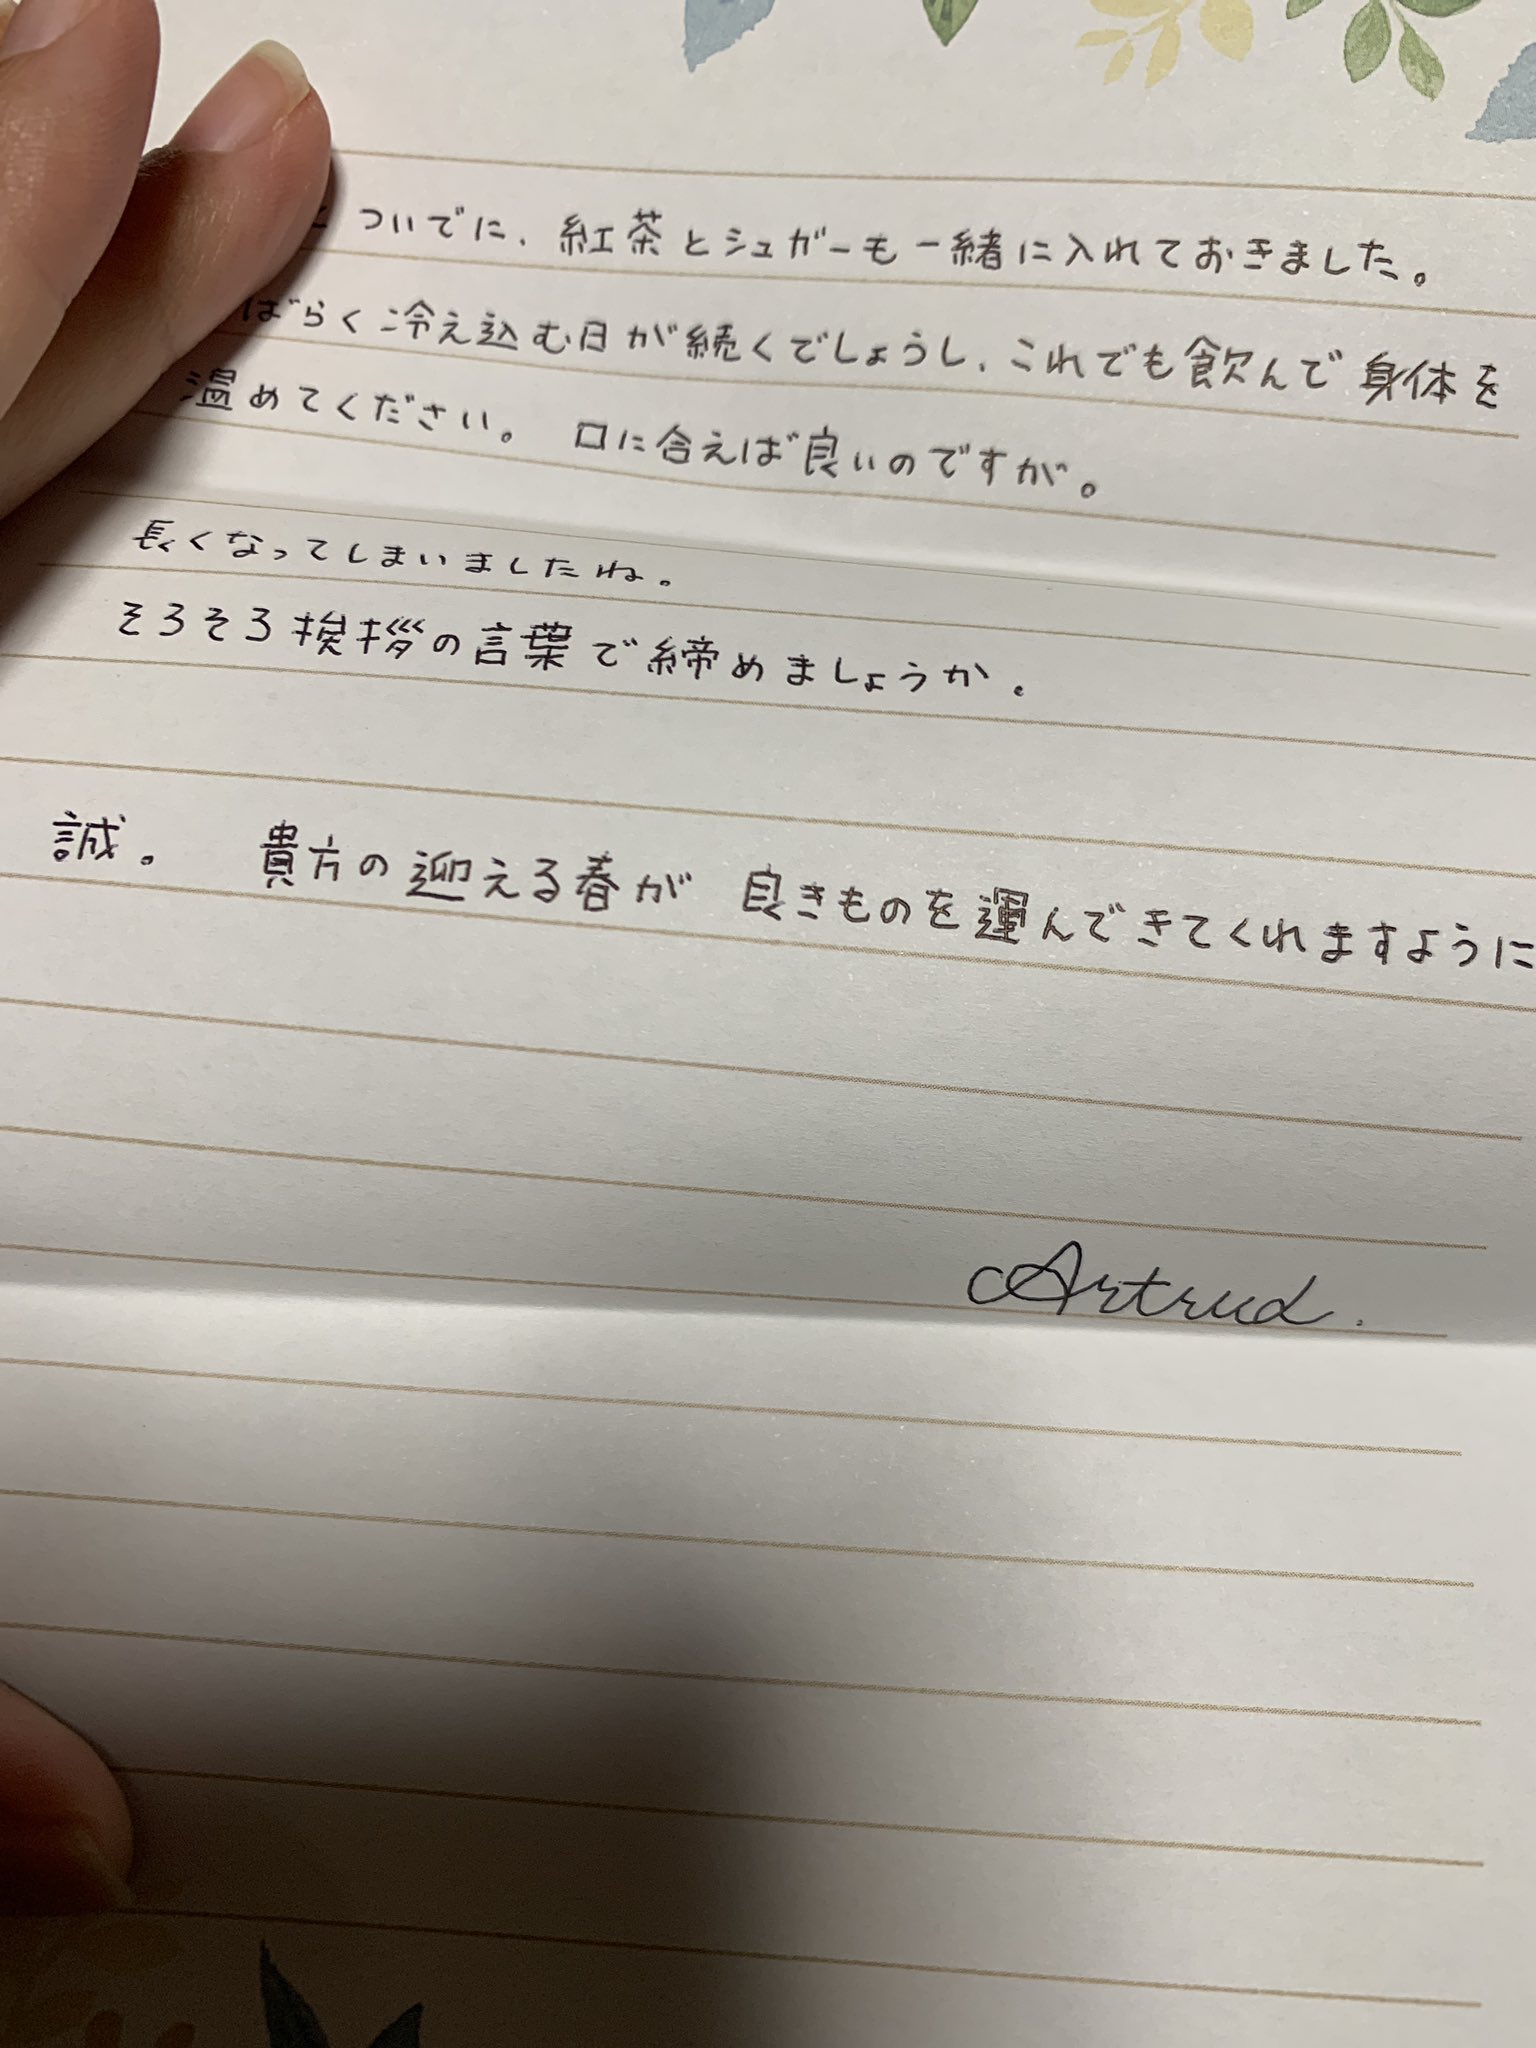 ついでに、紅茶とシュガーも一緒に入れておきました。
ばらく冷え込む日が続くでしょうし、これでも飲んで身体を
温めてください。 口に合えば良いのですが。
長くなってしまいましたね。
そろそろ挨拶の言葉で締めましょうか。
誠。 貴方の迎える春が 良きものを運んできてくれますように
Artrud.